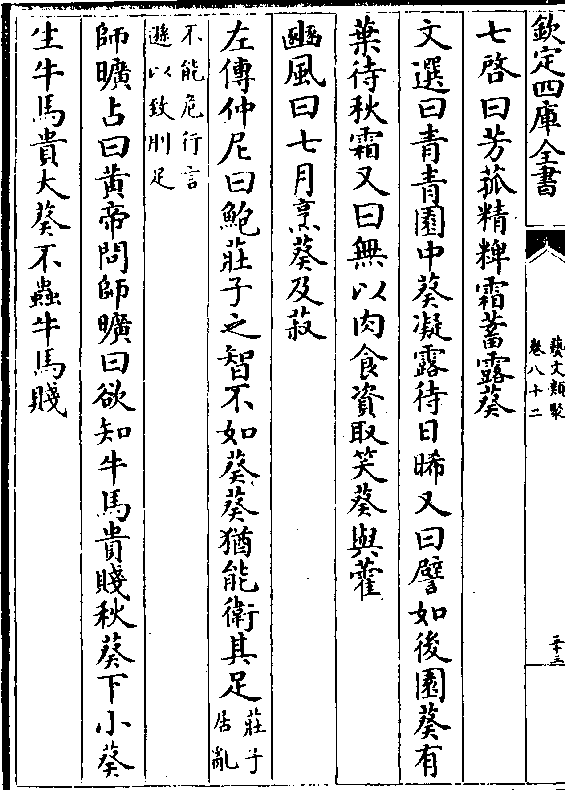 欽定四庫全書
藝文類聚
卷八十二
二十三
七啓曰芳菰精粺霜蓄露葵
文選曰青青園中葵凝露待日晞又曰譬如後園葵有
葉待秋霜又曰無以肉食資取笑葵與藿
豳風曰七月烹葵及菽
左傳仲尼曰鮑莊子之智不如葵葵猶能衛其足莊子
居亂
不能危行言
遜以致刖足
師曠占曰黄帝問師曠曰欲知牛馬貴賤秋葵下小葵
生牛馬貴大葵不蟲牛馬賤